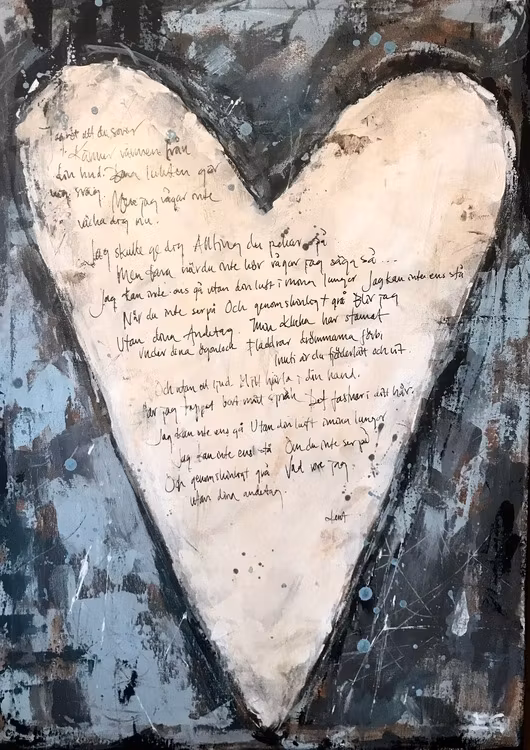 att du sover
Känner värmen från
din hud. Bara lukten gör
mig svag. Men jag vågar inte
väcka dig nu.
Jag skulle ge dig Allting du pekar på
Men bara när du inte hör vågar jag säga så ...
Jag kan inte ens gå utan din luft i mina lungor Jag kan inte ens stå
När du inte ser på Och genomskinligt grå Blir jag
Utan dina Andetag. Min klocka har stannat
Under dina ögonlock Fladdrar drömmarna förbi
Inuti är du fjäderlätt och vit
Och utan ett ljud Mitt hjärta i din hand.
Har jag tappat bort mitt språk Det fastnar i ditt hår.
Jag kan inte ens gå Utan din luft i mina lungor
Jag kan inte ens stå Om du inte ser på
Och genomskinligt grå Vad vore jag
utan dina andetag.
Kent